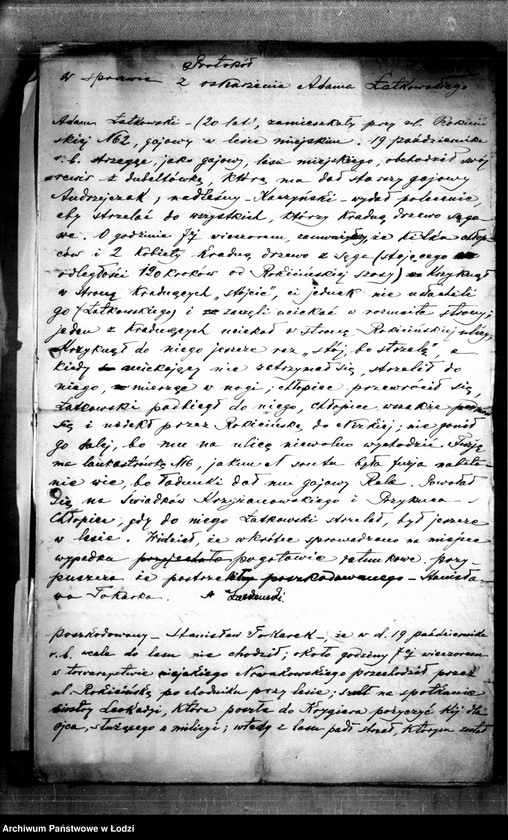 Protokół
w sprawie z oskarżenia Adama Łatkowskiego
Adam Łatkowski – (20 lat), zamieszkały przy ul. Rokiciń-
skiej №2, gajowy w lesie miejskim. 19 października
r.b. strzegąc, jako gajowy, lasu miejskiego, obchodził swój
rewir z dubeltówką, którą ma dał starszy gajowy
Andrzejczak; nadleśny – Kaczyński – wydał polecenie,
aby strzelać do wszystkich, którzy kradną drzewo sągo-
we. O godzinie 7½ wieczorem, zauważył, że kilku chłop-
ców i 2 kobiety kradną drzewo z sąga (stojącego
odległości 120 kroków od Rokicińskiej szosy) krzyknął
w stronę kradnących „stójcie", ci jednak nie usłuchali
go (Łatkowskiego) i zaczęli uciekać w rozmaite strony;
jeden z kradnących uciekał w stronę Rokicińskiej ulicy,
krzyknął do niego jeszcze raz „stój, bo strzelę", a
kiedy uciekający nie zatrzymał się, strzelił do
niego, mierząc w nogi; chłopiec przewrócił się,
Łatkowski podbiegł do niego, chłopiec wszakże
się i uciekł przez Rokicińską do; nie gonił
go dalej, bo mu na ulicę niewolno wychodzić. Fuzję
ma lankastrówkę №16, jakim № śrutu była fuzja nabita
nie wie, bo ładunki dał mu gajowy Rele. Powołał
się na świadków Krzyżanowskiego i
Chłopiec, gdy do niego Łatkowski strzelał, był jeszcze
w lesie. Widział, że wkrótce sprowadzono na miejsce
wypadku pogotowie ratunkowe, przy-
puszcza że postrzelił poszkodowanego – Stanisła-
wa Tokarka. A Łatkowski
Poszkodowany – Stanisław Tokarek –, że w d. 19 października
r.b. wcale do lasu nie chodził; około godziny 7½ wieczorem
w towarzystwie niejakiego Nowakowskiego przechodził przez
ul. Rokicińską po chodniku przy lesie; szedł na spotkanie
siostry Leokadji, która poszła do Krygiera pożyczyć kij dla
ojca, służącego w milicji; wtedy z lasu padł strzał, którym został
Archiwum Państwowe w Łodzi